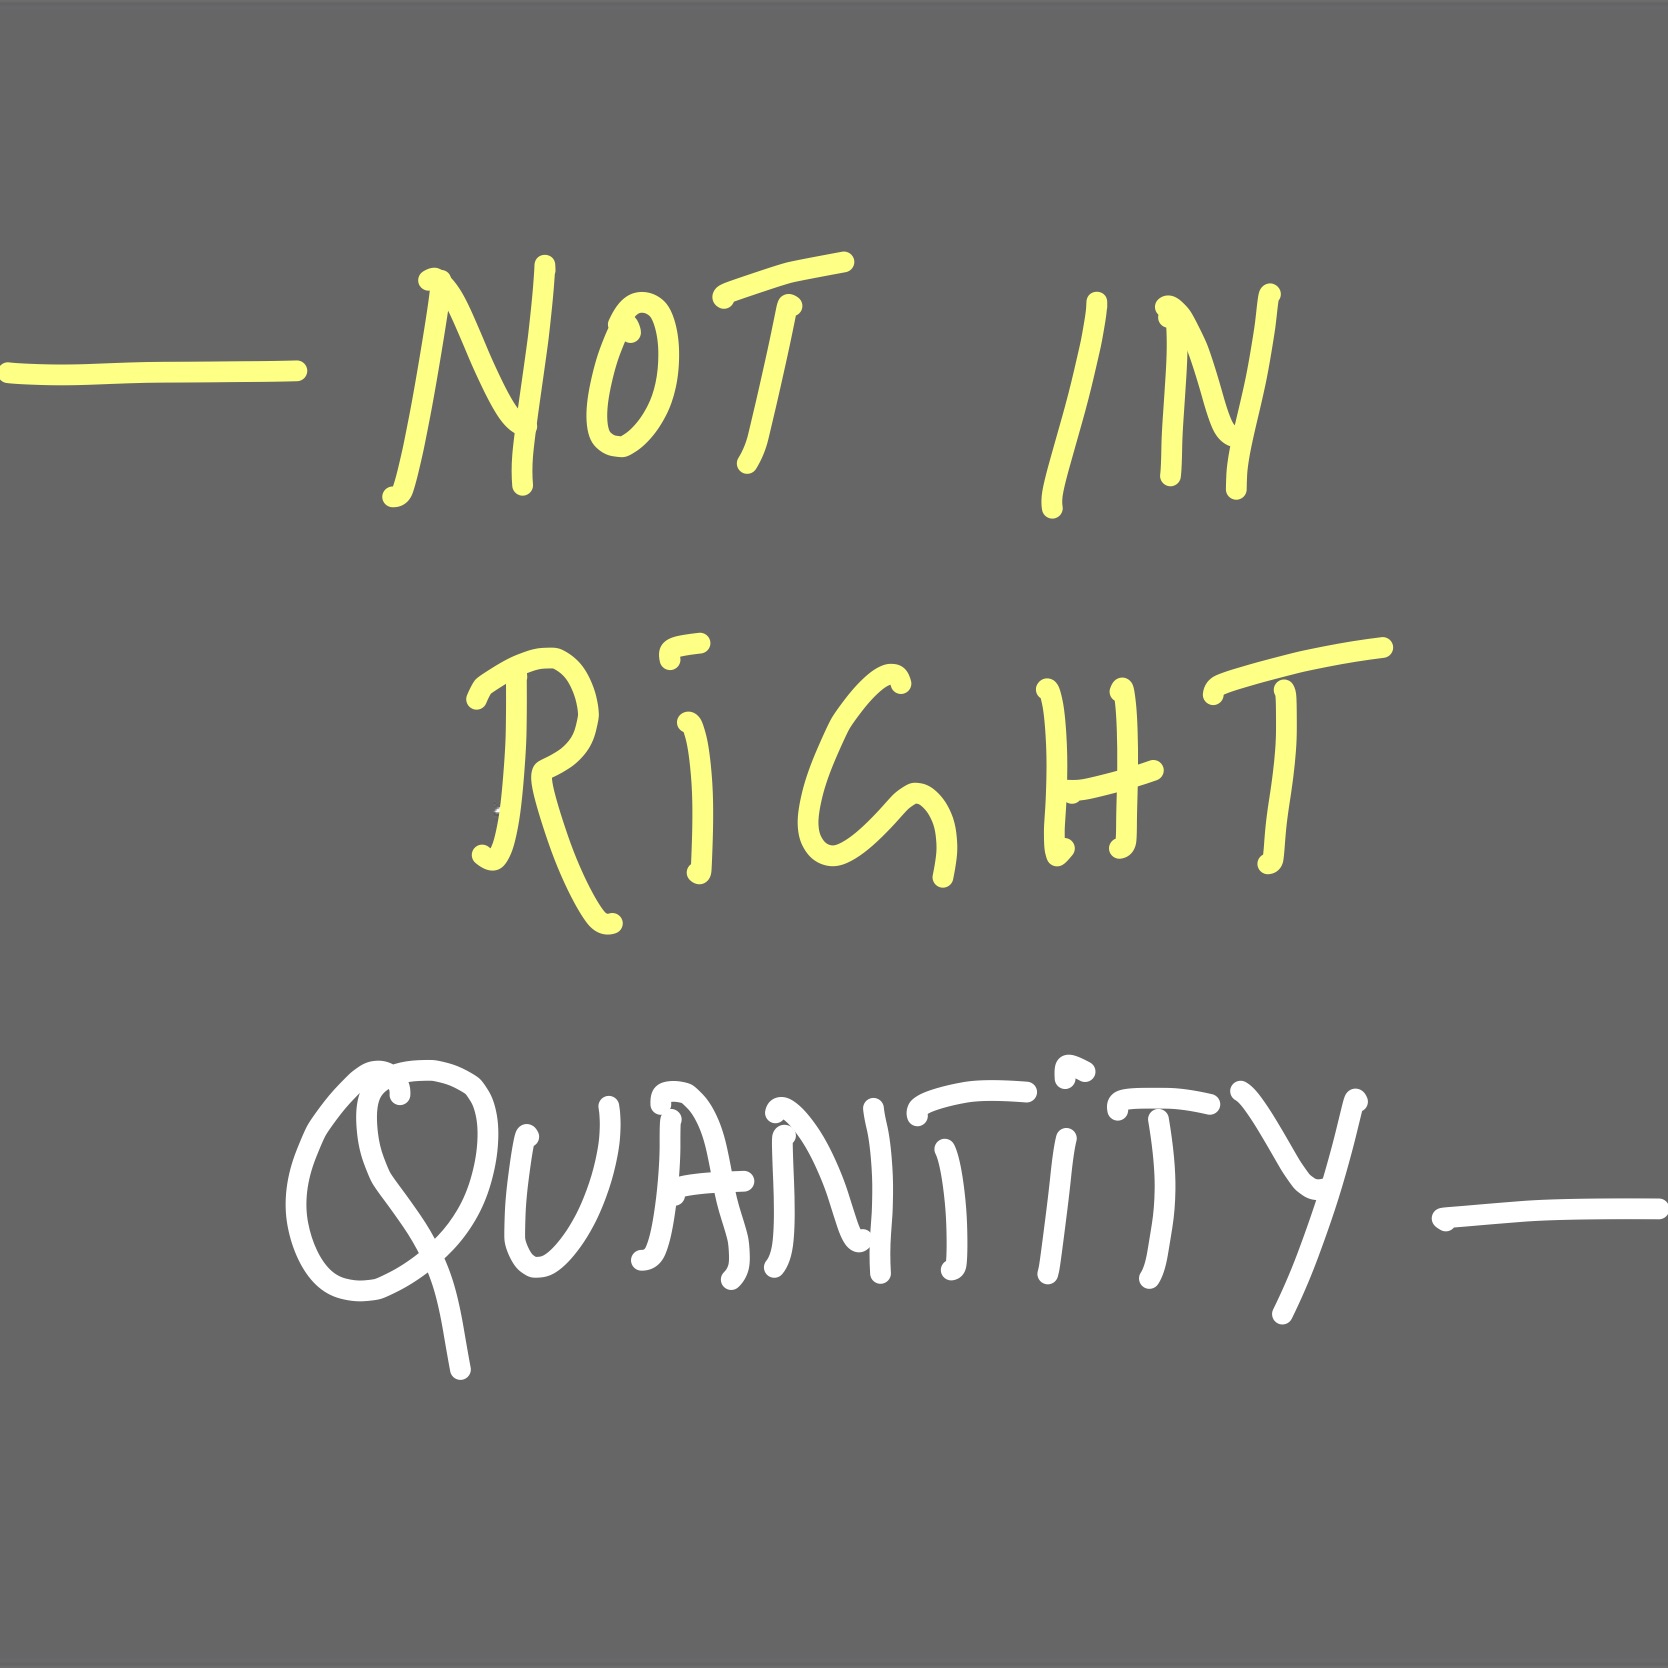 — NOT IN
RiGHT
QUANTiTY —